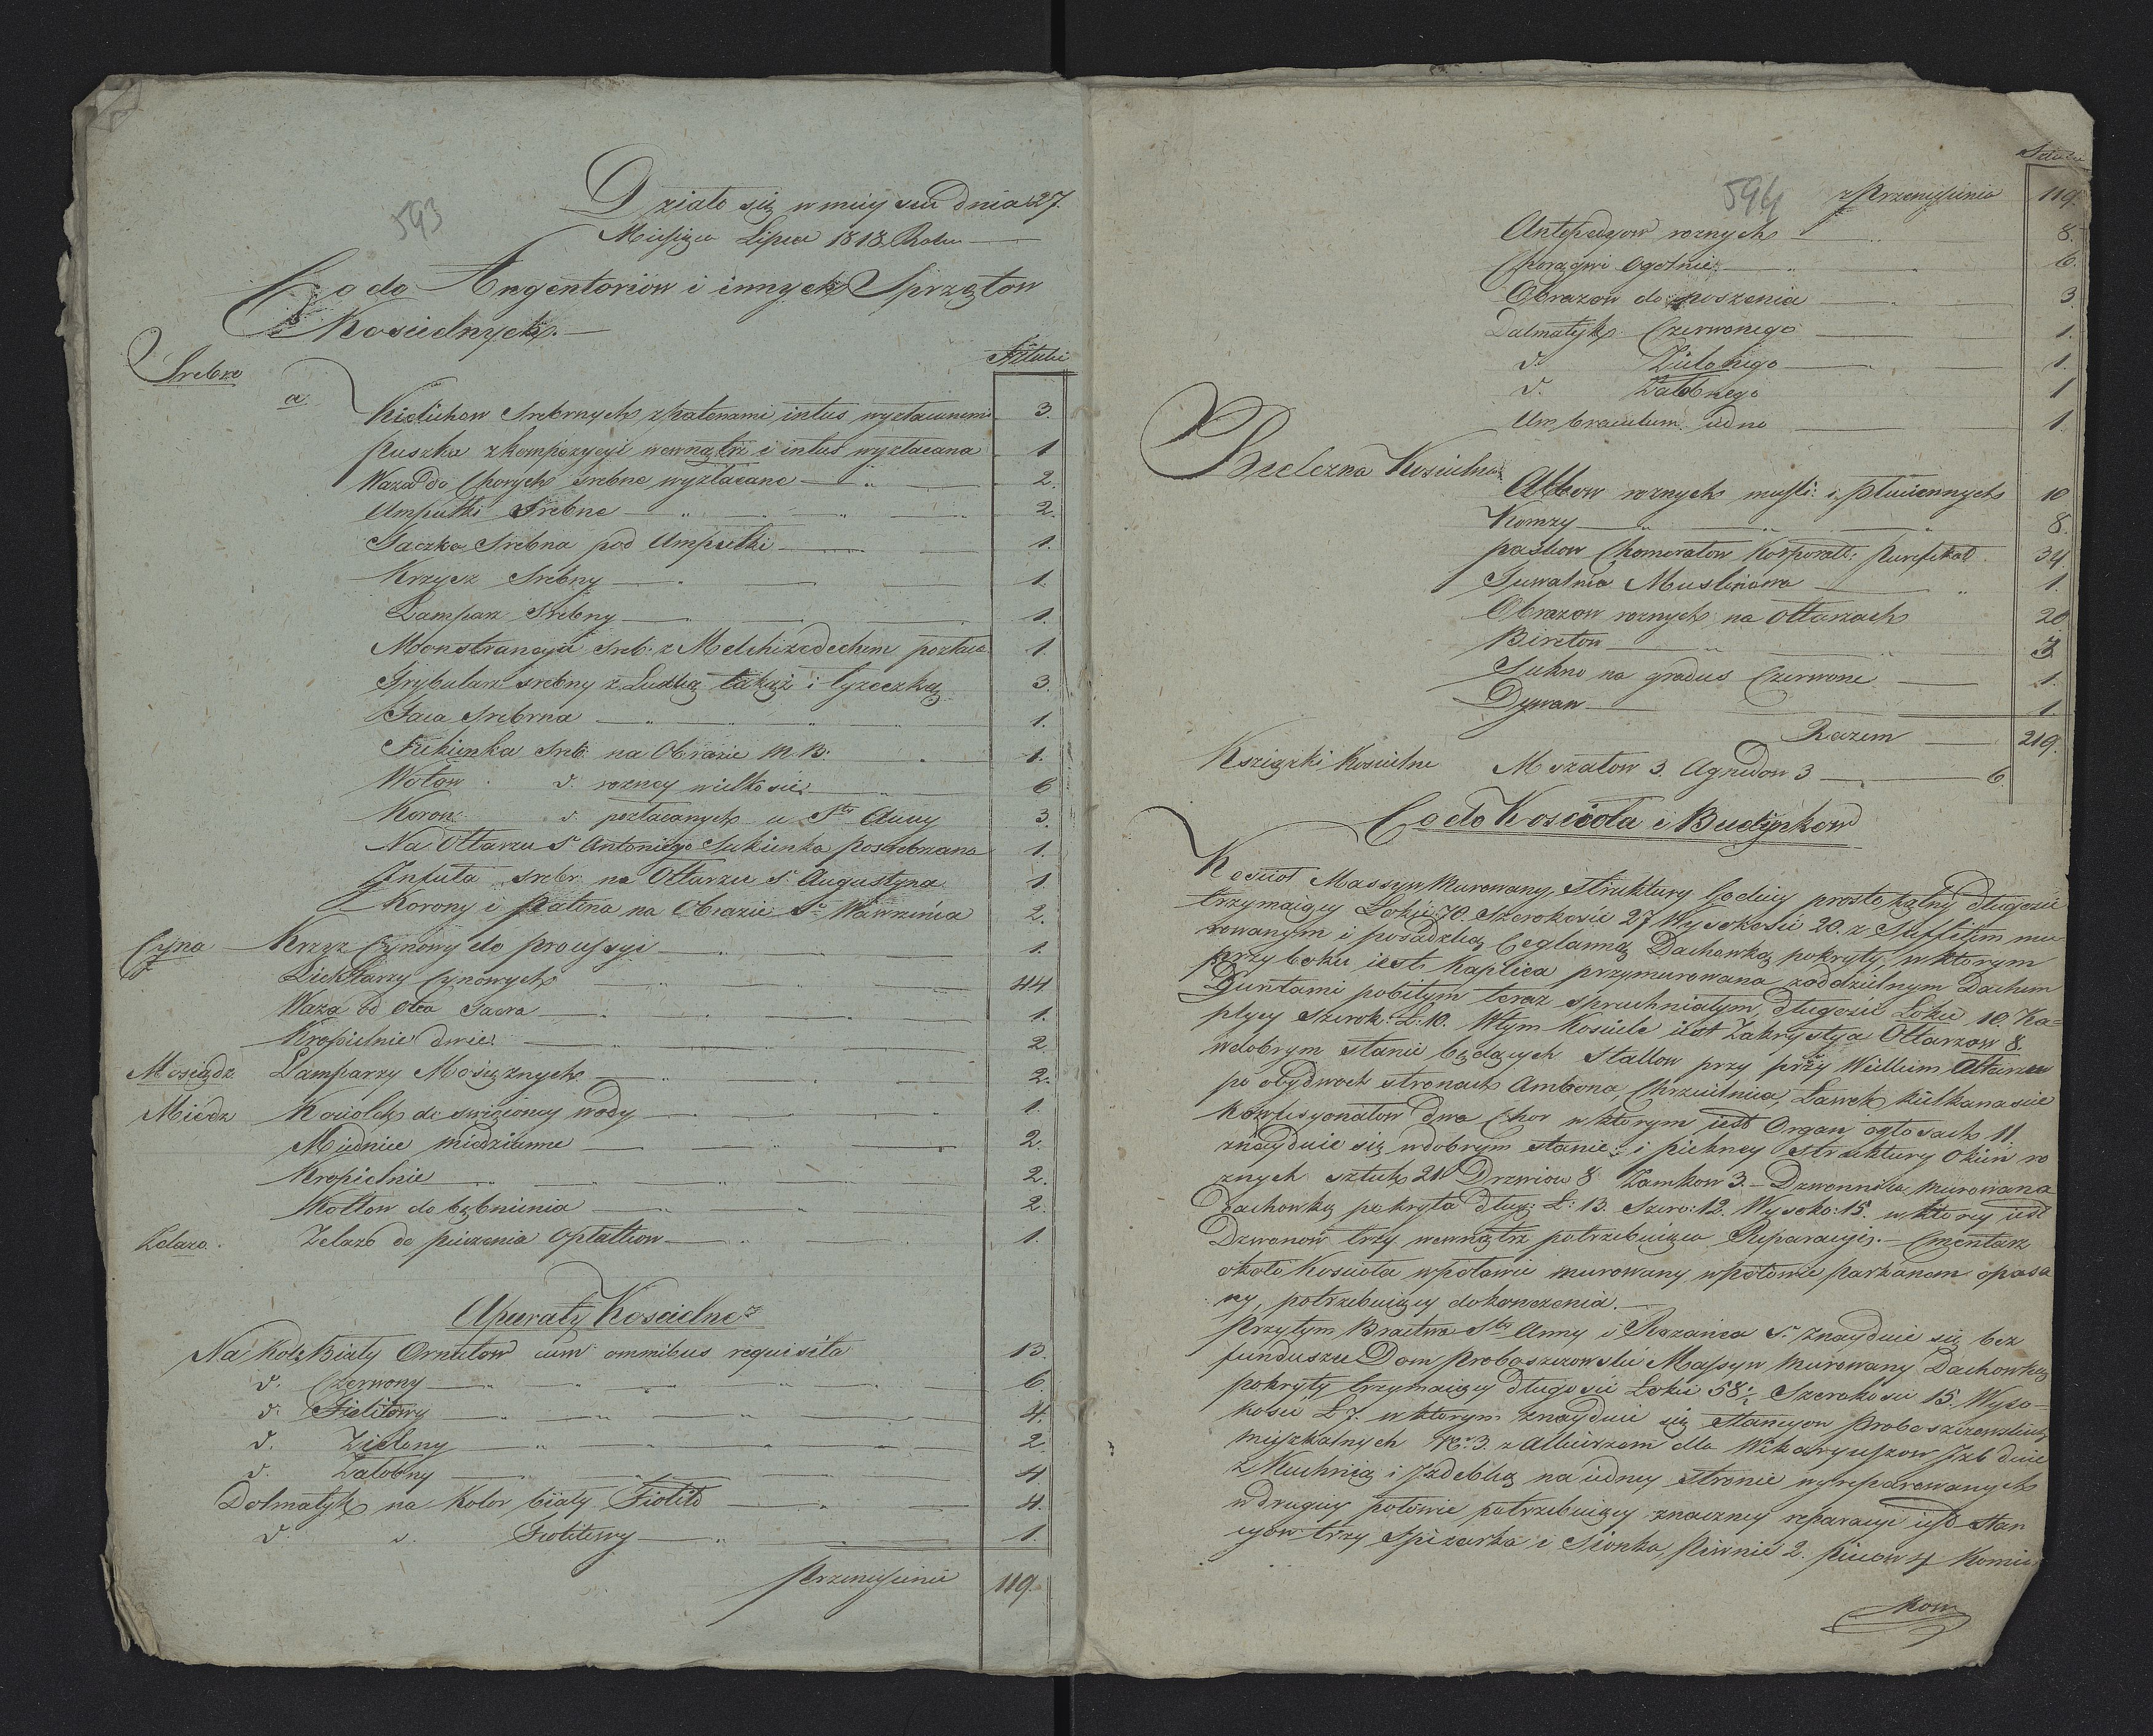 593
Działo się w mieyscu dnia 27.
Miesiąca Lipca 1818 Roku
Co do Argentoriów i innych Sprzętow
Koscielnych.
Sztuki
Srebro
a. Kielichow Srebrnych z patenami intus wyzłacanemi 3.
Puszka z kompozycyi wewnątrz i intus wyzłacana 1
Waza do Chorych srebne wyzłacane 2.
Ampułki Srebne 2.
Taczka Srebna pod Ampułki 1.
Krzysz Srebny 1.
Lampaz Srebny 1.
Moonstrancyia sreb: z Melchizedechem pozłac 1.
Trybularz srebny z Łudką takąż i łyżeczką 3.
Taca Srebrna 1.
Sukienka Sreb: na Obrazie M. B: 1.
Wotow d. rozney wielkosci 6
Koron: d. pozłacanych u Sty Anny 3.
Na Ołtarzu S. Antoniego Sukienka posrebrzana 1.
Infuła srebr: na Ołtarzu S. Augustyna 1
Korony i Patena na Obrazie S. Wawrzeńca 2.
Cyna Krzyz Cynowy do processyi 1.
Lichtarzy Cynowych 44
Waza od Olea Sacra 1.
Kropielnie dwie 2
Mosiądz Lamparzy Mosięznych 2.
Miedz Kociołek do swięconey wody 1.
Miednice miedzianne 2.
Kropielnie 2.
Kotłow do bębnienia 2.
Zelazo. Zelazo do pieczenia Opłatkow 1.
Aparaty Koscielne
Na Kolor Biały Ornatow cum omnibus requisita 13.
d. Czerwony 6.
d. Fioletowy 4.
d. Zielony 2.
d. Załobny 4
Dolmatyk na Kolor biały Fiolet 4.
d. d. Fioletowy 1.
Przeniesienie 119.
594
Sztuki
z Przeniesienia 119.
Antepedyow roznych 8.
Chorągwi Ogolnie 6.
Obrazow do noszenia 3
Dalmatyk Czerwonego 1.
d. Zielonego 1.
d. Załobnego 1
Umbraculum jedno 1.
Bielizna Koscielna
Albow roznych musli: i płuciennych 10
Komzy 8.
paskow Chomeratow Korporali: Puryfikat 34.
Tuwalnia Muslinowa 1.
Obrazow roznych na Ołtarzach 20
Biretow 3
Sukno na gradus Czerwone 1.
Dywan 1.
Razem 219.
Ksziązki Koscielne Mszałow 3. Agendow 3 6.
Co do Kosciola i Budynkow
Kosciol Massyw Murowany, struktury Godney prosto kątny długosci
trzymaiący Łokci 70. Szerokosci 27 Wysokosci 20. z Suffitem mu-
rowanym i posadzką Ceglanną Dachowką pokryty, w ktorym
przy boku iest Kaplica przymurowana z oddzielnym Dachem
Guntami pobitym teraz spruchniałym, długosci Łokci 10. Ka-
plycy Szerok: Ł: 10. W tym Kosciele iest Zakrystya Ołtarzow 8
w dobrym stanie będących Stallow przy przy Wielkim Ołtarzu
po obydwoch stronach Ambona, Chrzcielnica, Ławek kilkanascie
Konfesyonałow dwa Chor w ktorym iest Organ o głosach 11.
znayduie się w dobrym stanie i piekney Struktury Okien ro
znych sztuk 21 Drzwiow 8 Zamkow 3. Dzwonnica murowana
Dachowką pokryta dług: Ł: 13. Szero: 12. Wysoko: 15. w ktorey iest
Dzwonow trzy wewnątrz potrzebuiąca Reparacyi. Cmentarz
około Kosciola w połowie murowany w połowie parkanem opasa
ny, potrzebuiący dokonczenia.
Przytym Bractwo Sty Anny i Rozańca S. znayduie się bez
funduszu Dom Proboszczowski Massyw murowany Dachowką
pokryty trzymaiący długosci Łokci 58. Szerokosci 15. Wyso-
kosci Ł 7. w ktorym znayduie się Stancyow Proboszczowskich
mieszkalnych Nr. 3. z Alkierzem dla Wikaryuszow Izb dwie
z Kuchnią i Izdebką na iedney stronie wyreparowanych
w drugiey połowie potrzebuiący znaczney reparacyi iest Stan
cyow trzy Spizarka i Sionka, Piwnic 2. Piecow 4 Komi
now